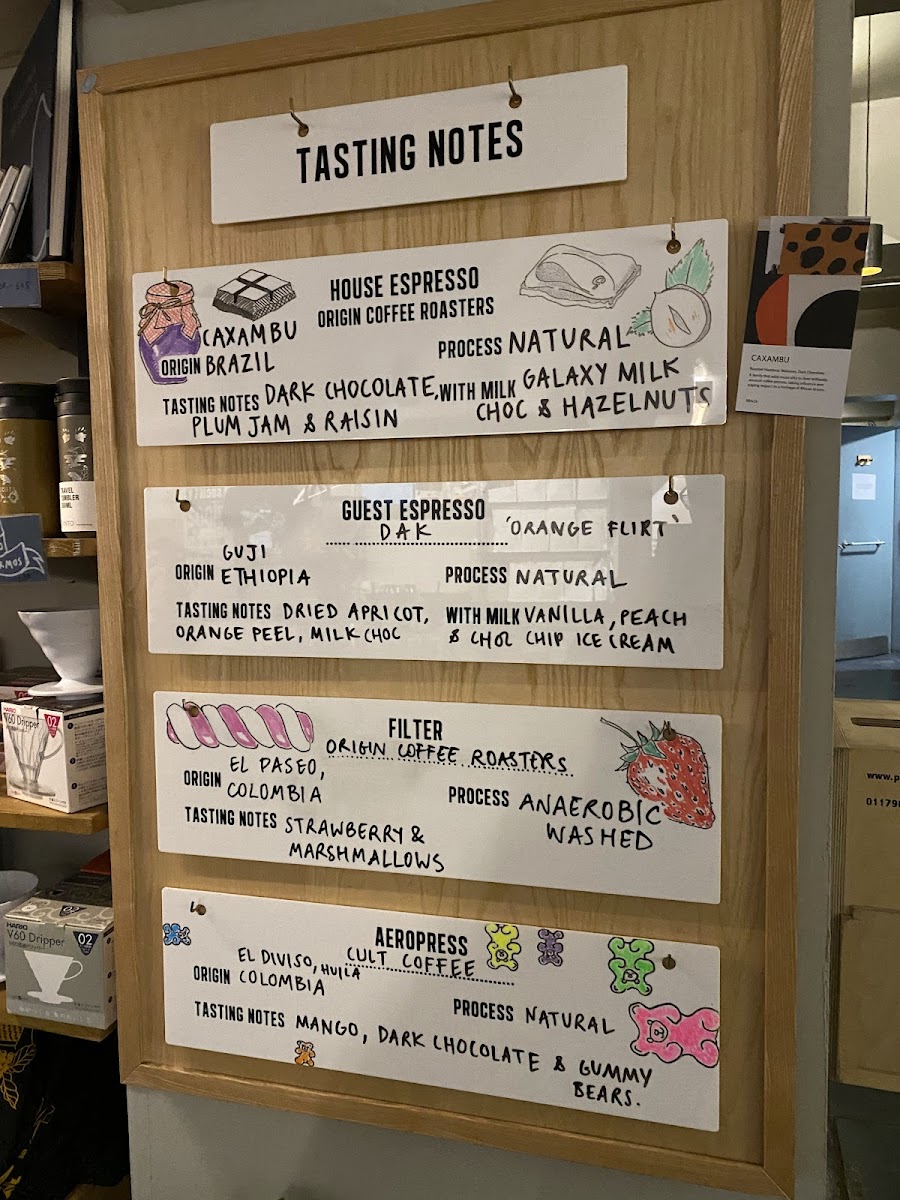 TASTING NOTES
HOUSE ESPRESSO
ORIGIN COFFEE ROASTERS
CAXAMBU
ORIGIN BRAZIL
PROCESS NATURAL
TASTING NOTES DARK CHOCOLATE,
PLUM JAM & RAISIN
WITH MILK GALAXY MILK
CHOC & HAZELNUTS
CAXAMBU
GUEST ESPRESSO
DAK 'ORANGE FLIRT'
GUJI
ORIGIN ETHIOPIA
PROCESS NATURAL
TASTING NOTES DRIED APRICOT,
ORANGE PEEL, MILK CHOC
WITH MILK VANILLA, PEACH
& CHOC CHIP ICE CREAM
FILTER
ORIGIN COFFEE ROASTERS
EL PASEO,
ORIGIN COLOMBIA
PROCESS ANAEROBIC
WASHED
TASTING NOTES STRAWBERRY &
MARSHMALLOWS
AEROPRESS
CULT COFFEE
EL DIVISO, HUILA
ORIGIN COLOMBIA
PROCESS NATURAL
TASTING NOTES MANGO, DARK CHOCOLATE & GUMMY
BEARS.
TRAVEL
TUMBLER
HARIO
V60 Dripper 02
HARIO
V60 Dripper 02
www.p
01179